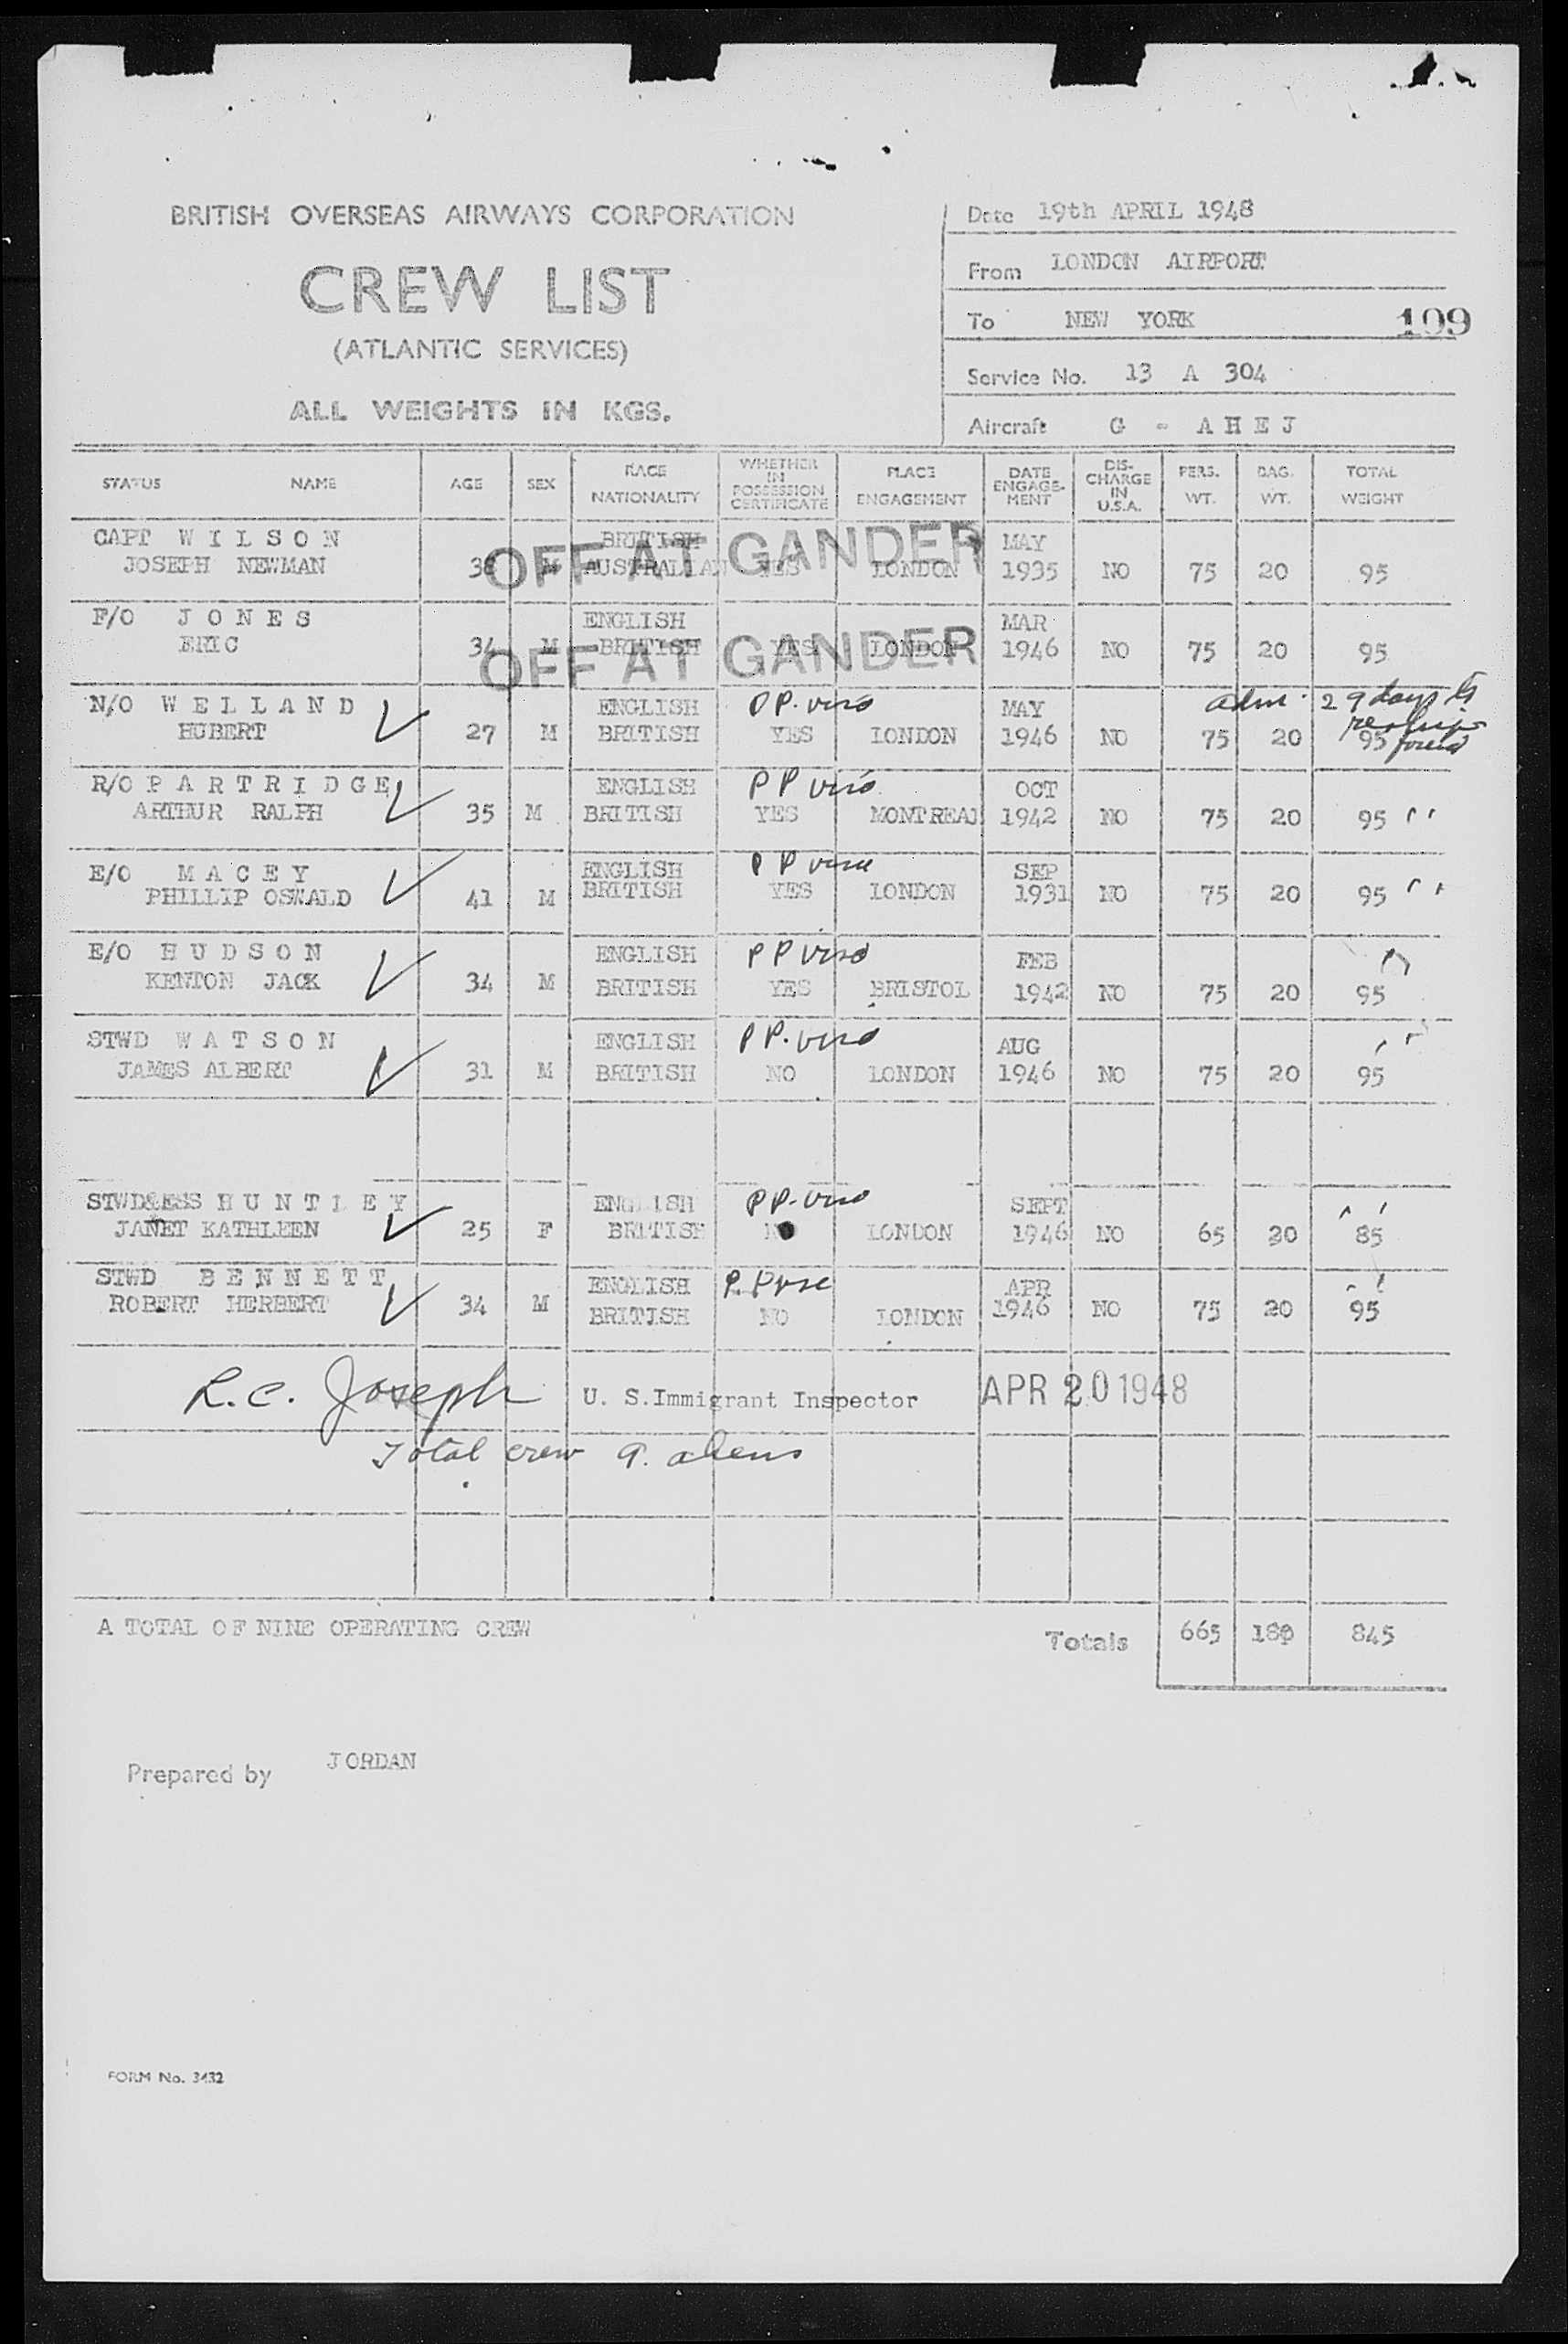 BRITISH OVERSEAS AIRWAYS CORPORATION
CREW LIST
(ATLANTIC SERVICES)
ALL WEIGHTS IN KGS.
Date 19th APRIL 1948
From LONDON AIRPORT
To NEW YORK 199
Service No. 13 A 304
Aircraft G - AHEJ
STATUS NAME AGE SEX RACE NATIONALITY WHETHER IN POSSESSION CERTIFICATE PLACE ENGAGEMENT DATE ENGAGE-MENT DIS-CHARGE IN U.S.A. PERS. WT. BAG. WT. TOTAL WEIGHT
CAPT WILSON BRITISH MAY
JOSEPH NEWMAN 38 M AUSTRALIAN YES LONDON 1935 NO 75 20 95
OFF AT GANDER
F/O JONES ENGLISH MAR
ERIC 34 M BRITISH YES LONDON 1946 NO 75 20 95
OFF AT GANDER
N/O WELLAND ENGLISH PP. viso MAY adm. 29 days to
HUBERT 27 M BRITISH YES LONDON 1946 NO 75 20 95
R/O PARTRIDGE ENGLISH PP viso OCT
ARTHUR RALPH 35 M BRITISH YES MONTREAL 1942 NO 75 20 95 "
E/O MACEY ENGLISH PP vise SEP
PHILLIP OSWALD 41 M BRITISH YES LONDON 1931 NO 75 20 95 "
E/O HUDSON ENGLISH PP viso FEB "
KENTON JACK 34 M BRITISH YES BRISTOL 1942 NO 75 20 95
STWD WATSON ENGLISH PP. viso AUG "
JAMES ALBERT 31 M BRITISH NO LONDON 1946 NO 75 20 95
STWD&ESS HUNTLEY ENGLISH PP. viso SEPT "
JANET KATHLEEN 25 F BRITISH NO LONDON 1946 NO 65 20 85
STWD BENNETT ENGLISH P.P vise APR "
ROBERT HERBERT 34 M BRITISH NO LONDON 1946 NO 75 20 95
R.C. Joseph U. S. Immigrant Inspector APR 20 1948
Total crew 9. aliens
A TOTAL OF NINE OPERATING CREW Totals 665 180 845
Prepared by JORDAN
FORM No. 3432